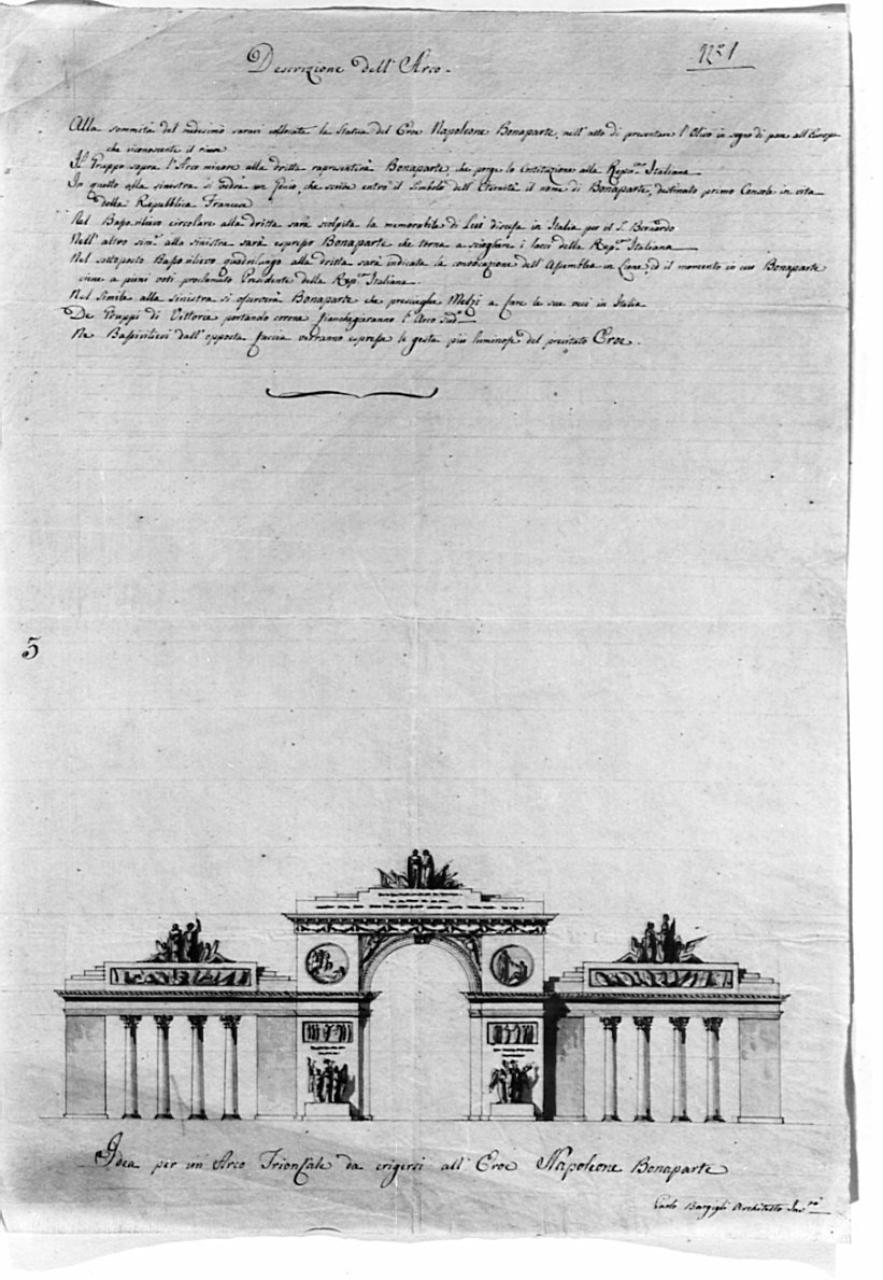 Descrizione dell'Arco.
N.º 1
Alla sommità del medesimo saravi collocata la Statua del Eroe Napoleone Bonaparte, nell'atto di presentare l'Olivo in segno di pace all'Europa
che riconoscente il riceve
Il Gruppo sopra l'Arco minore alla dritta rapresenterà Bonaparte, che porge la Costituzione alla Rep.ca Italiana
In quello alla sinistra si vedrà un Genio, che scrive entro il Simbolo dell'Eternità il nome di Bonaparte, destinato primo Console in vita
della Repubblica Francese
Nel Basso rilievo circolare alla dritta sarà scolpita la memorabile di Lui discesa in Italia per il S. Bernardo
Nell'altro sim.e alla sinistra sarà espresso Bonaparte che torna a sciogliere i lacci della Rep.ca Italiana
Nel sottoposto Basso rilievo quadrilungo alla dritta sarà indicata la convocazione dell'Assemblea in Lione, ed il momento in cui Bonaparte
viene a pieni voti proclamato Presidente della Rep.ca Italiana
Nel simile alla sinistra si osserverà Bonaparte che presceglie Melzi a fare le sue veci in Italia
De Gruppi di Vittorie portando corone fiancheggiaranno l'Arco Sud.o
Ne Bassirilievi dall'opposta faccia verranno espresse le gesta più luminose del precitato Eroe.
5
Idea per un Arco Trionfale da erigersi all'Eroe Napoleone Bonaparte
Carlo Bargigli Architetto